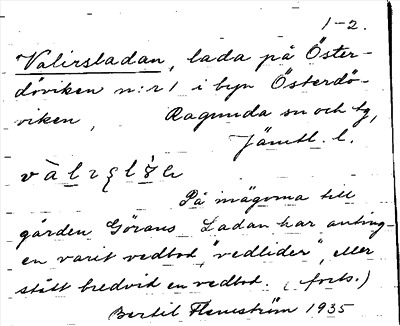 1-2.
Valirsladan, lada på Öster-
döviken n:r 1 i byn Österdö-
viken, Ragunda sn och tg,
Jämtl. l.
På mägorna till
gården Görans. Ladan har anting-
en varit vedbod, "vedlider", eller
stått bredvid en vedbod. (forts.)
Bertil Flemström 1935